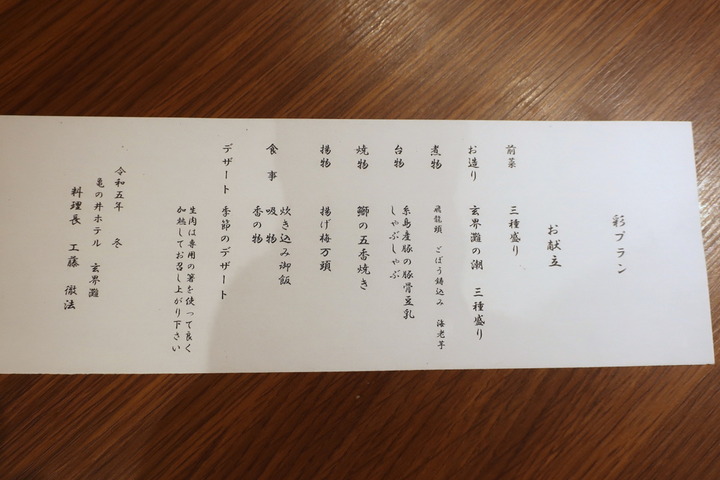 彩プラン
お献立
前菜 三種盛り
お造り 玄界灘の潮 三種盛り
煮物 飛龍頭 ごぼう鋳込み 海老芋
台物 糸島産豚の豚骨豆乳
しゃぶしゃぶ
焼物 鰤の五香焼き
揚物 揚げ梅万頭
炊き込み御飯
食事 吸物
香の物
デザート 季節のデザート
生肉は専用の箸を使って良く
加熱してお召し上がり下さい
令和五年 冬
亀の井ホテル 玄界灘
料理長 工藤 徹法